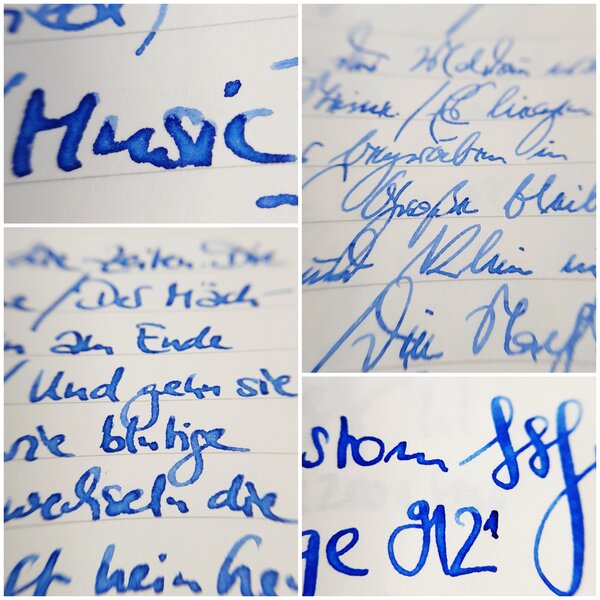 Music
der Moldau w
Steine. / Es liegen
begraben in
Große bleib
und klein ni
Die Nach
die Zeiten. Die
e / Der Mäch-
n am Ende
/ Und gehn sie
wie blutige
wechseln die
ft kein Ge
storm
ge